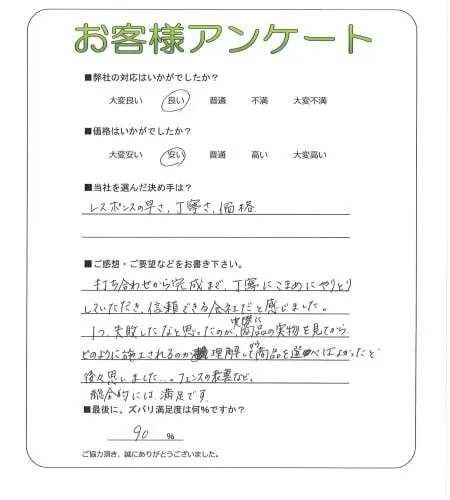 お客様アンケート
■弊社の対応はいかがでしたか?
大変良い 良い 普通 不満 大変不満
■価格はいかがでしたか?
大変安い 安い 普通 高い 大変高い
■当社を選んだ決め手は?
レスポンスの早さ、丁寧さ、価格
■ご感想・ご要望などをお書き下さい。
打ち合わせから完成まで、丁寧にこまめにやりとり
していただき、信頼できる会社だと感じました。
1つ、失敗したなと思ったのが、実際に商品の実物を見てから、
どのように施工されるのか理解してから商品を選べばよかったと
後々思いました…。フェンスの表裏など。
総合的には、満足です。
■最後に、ズバリ満足度は何%ですか?
90 %
ご協力頂き、誠にありがとうございました。